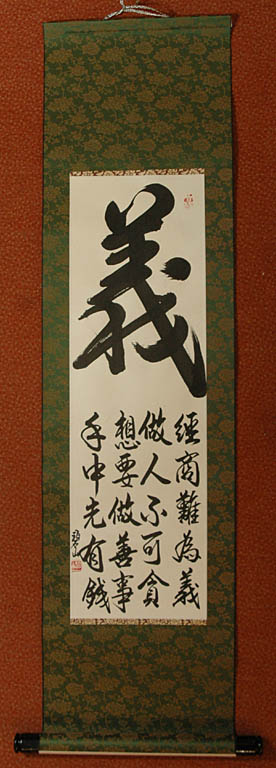 義
經商難為義
做人不可貪
想要做善事
手中先有錢